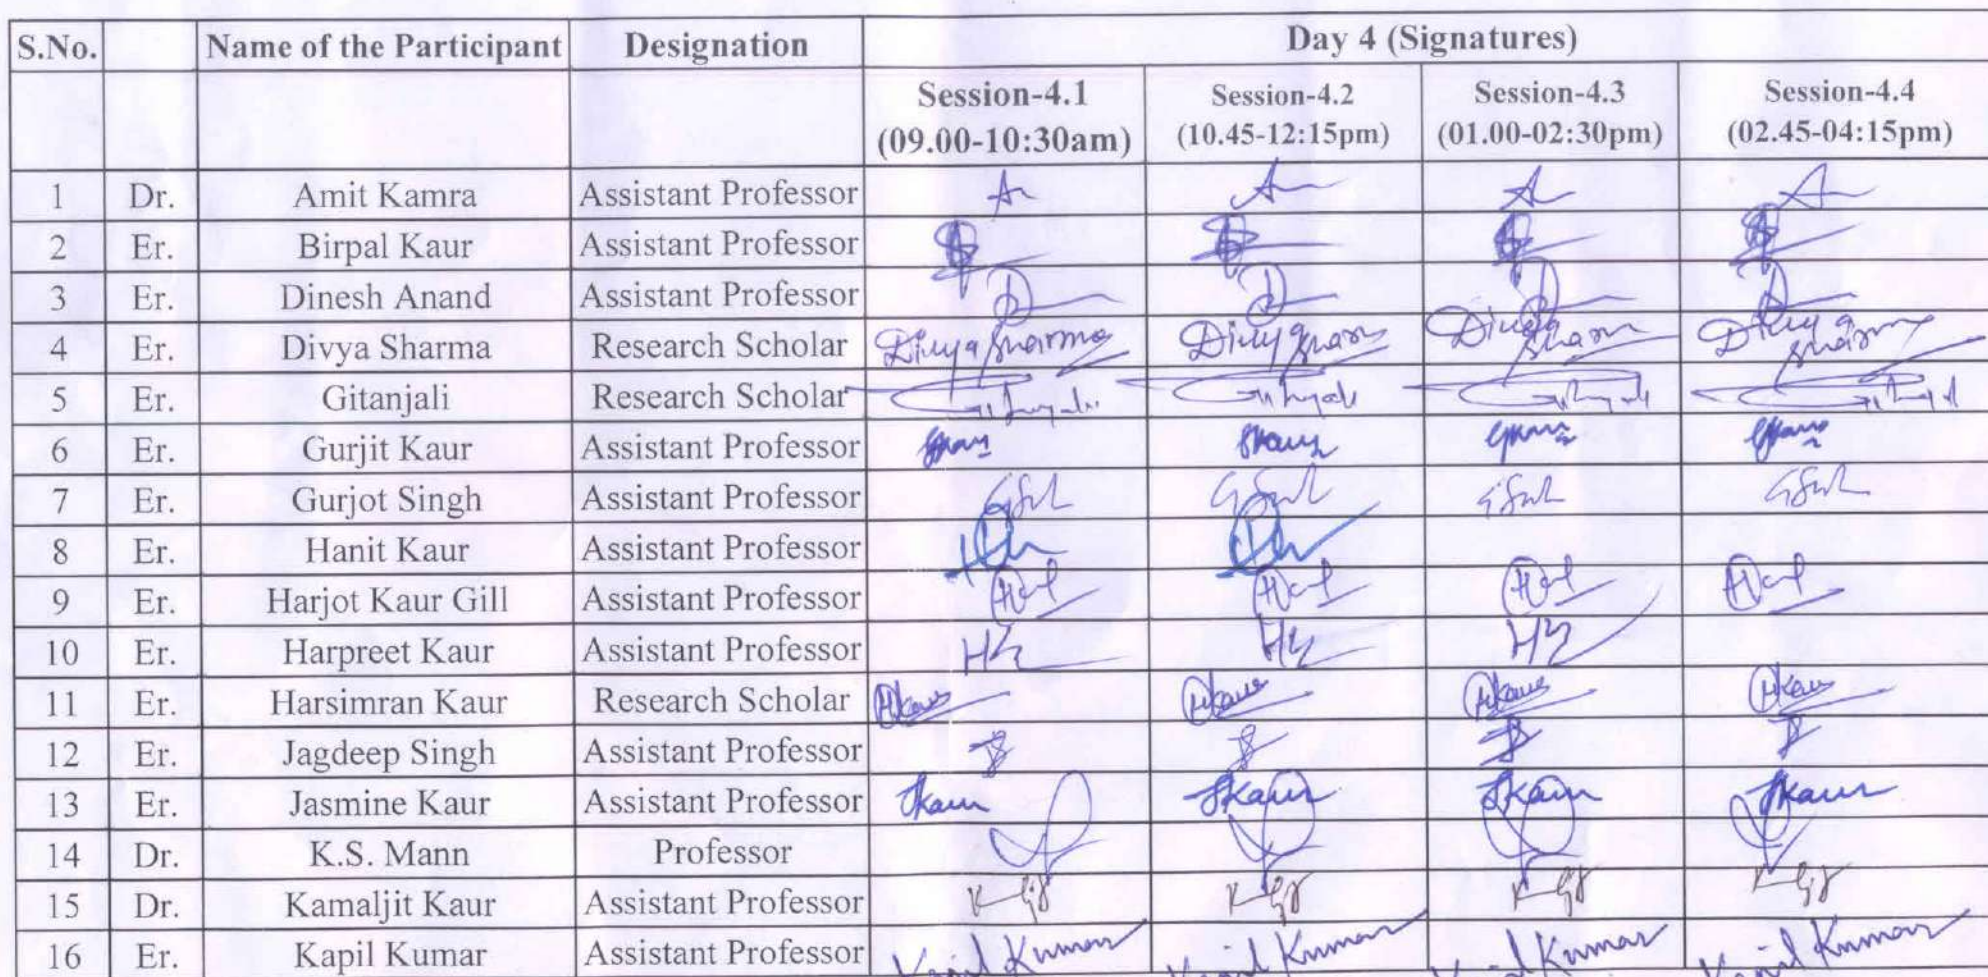 S.No. Name of the Participant Designation Day 4 (Signatures)
Session-4.1 Session-4.2 Session-4.3 Session-4.4
(09.00-10:30am) (10.45-12:15pm) (01.00-02:30pm) (02.45-04:15pm)
1 Dr. Amit Kamra Assistant Professor
2 Er. Birpal Kaur Assistant Professor
3 Er. Dinesh Anand Assistant Professor
4 Er. Divya Sharma Research Scholar Divya Sharma Divya Sharm Divya Sharm Divya Sharma
5 Er. Gitanjali Research Scholar
6 Er. Gurjit Kaur Assistant Professor
7 Er. Gurjot Singh Assistant Professor
8 Er. Hanit Kaur Assistant Professor
9 Er. Harjot Kaur Gill Assistant Professor
10 Er. Harpreet Kaur Assistant Professor
11 Er. Harsimran Kaur Research Scholar Hkaur Hkaur Hkaur Hkaur
12 Er. Jagdeep Singh Assistant Professor
13 Er. Jasmine Kaur Assistant Professor Jkaur Jkaur Jkaur Jkaur
14 Dr. K.S. Mann Professor
15 Dr. Kamaljit Kaur Assistant Professor
16 Er. Kapil Kumar Assistant Professor Kapil Kumar Kapil Kumar Kapil Kumar Kapil Kumar